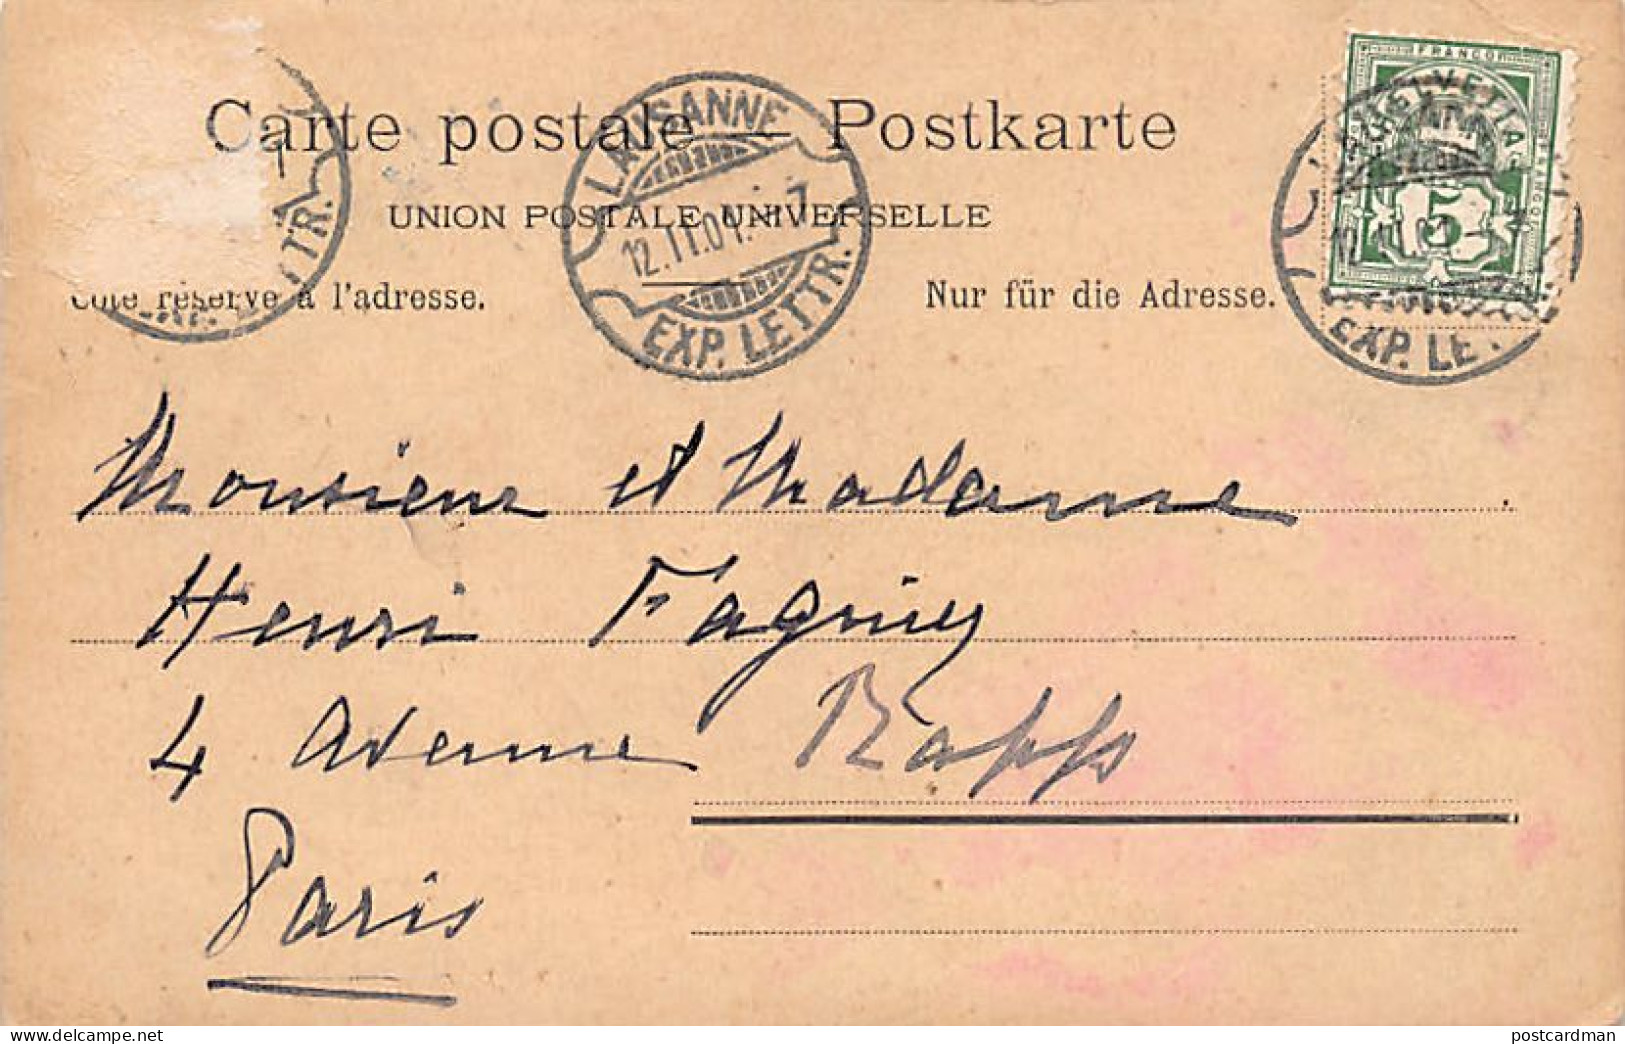 Carte postale — Postkarte
UNION POSTALE UNIVERSELLE
Côté réservé à l'adresse.
Nur für die Adresse.
LAUSANNE
12.II.04. - 7
EXP. LETTR.
FRANCO
HELVETIA
5
EXP. LE
TTR.
Monsieur et Madame
Henri Fagniez
4 Avenue Rapp
Paris
delcampe.net
postcardman